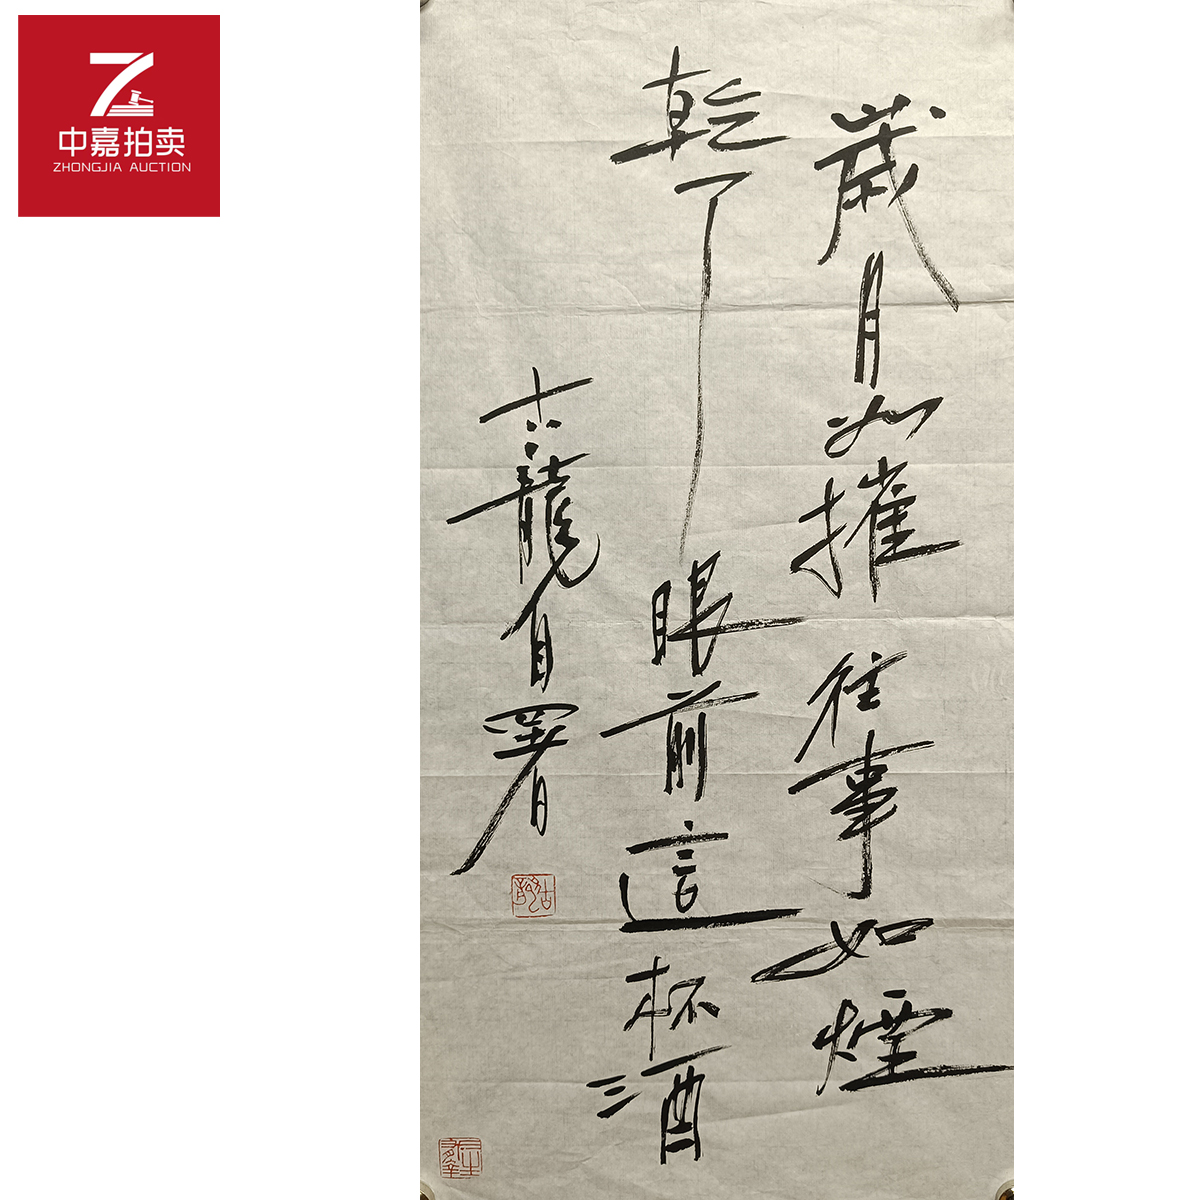 中嘉拍卖
ZHONGJIA AUCTION
歲月如摧往事如煙
乾了眼前這杯酒
古龍自署